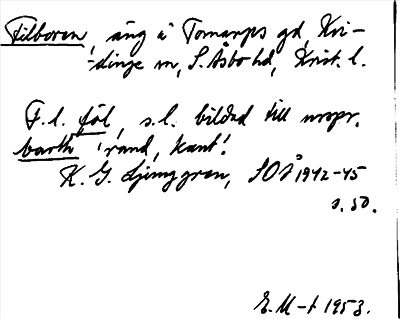 Filboren, äng å Tomarps gd, Kvi-
-dinge sn, S. Åsbo hd, Krist. l.
F.l. föl, s.l. bildad till urspr.
barth 'rand, kant'.
K. G. Ljunggren, SOÅ 1942-45
s. 50.
E. M-t 1953.